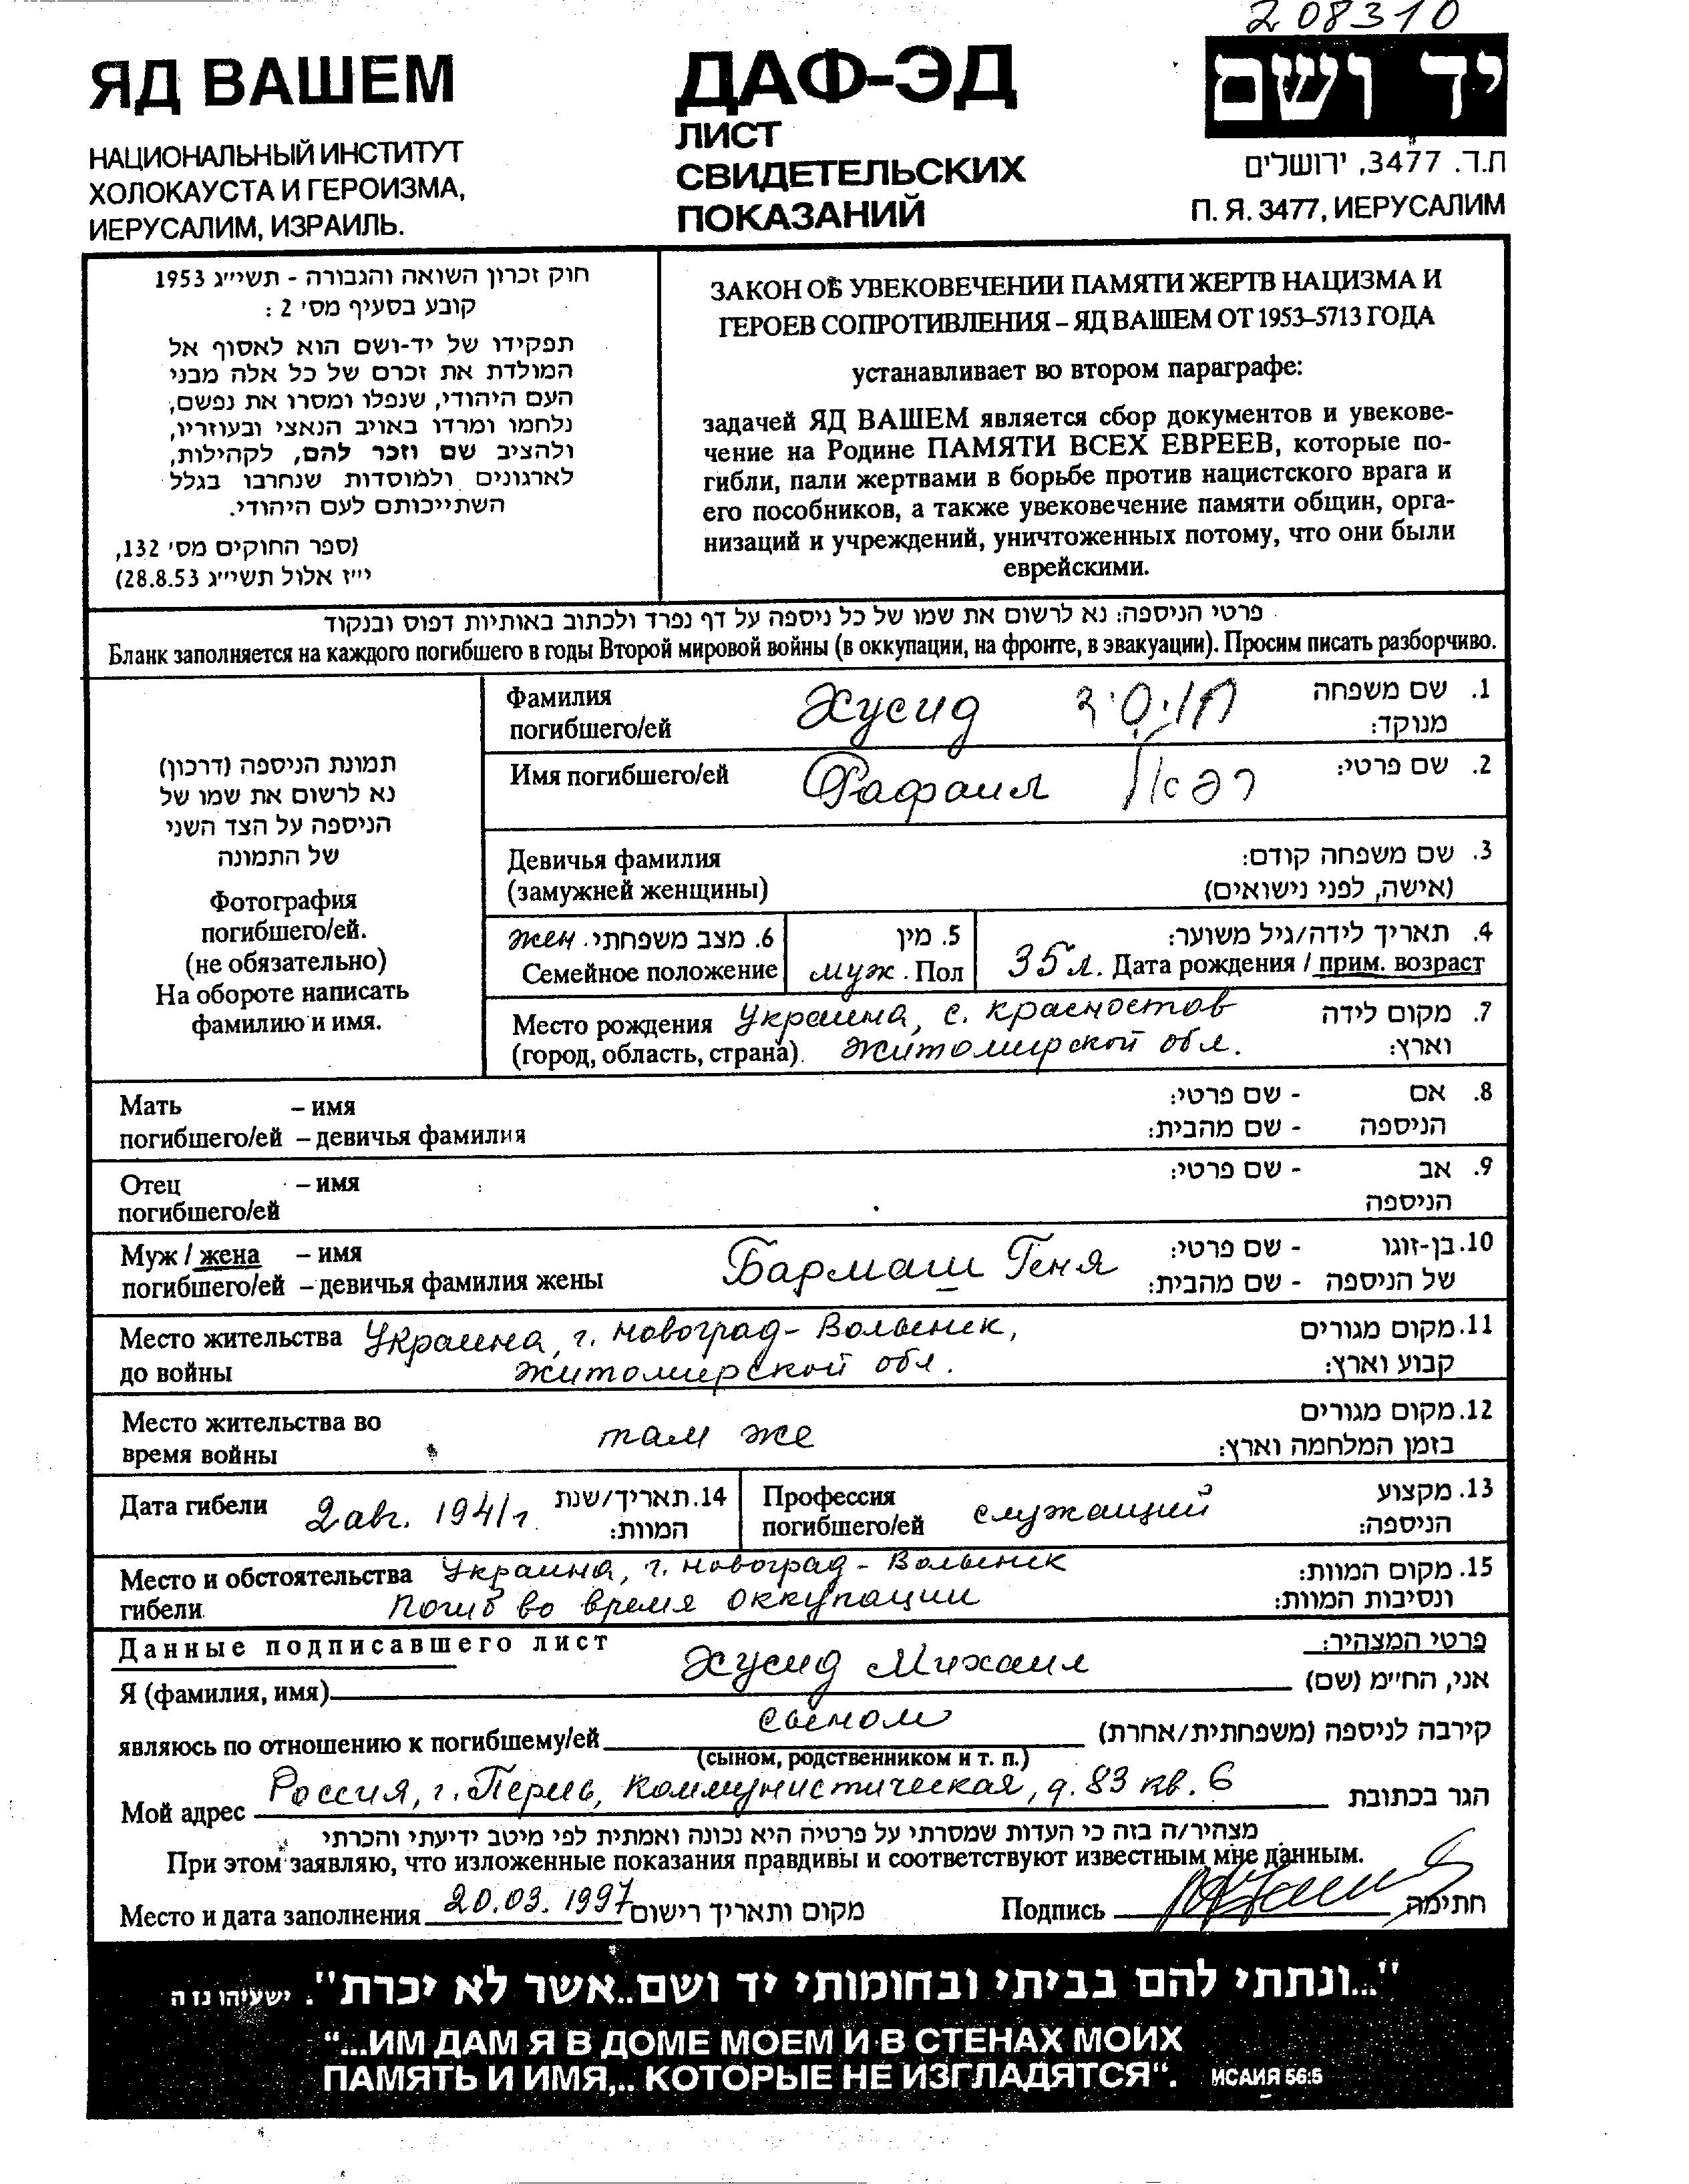 208310
ЯД ВАШЕМ
НАЦИОНАЛЬНЫЙ ИНСТИТУТ
ХОЛОКАУСТА И ГЕРОИЗМА,
ИЕРУСАЛИМ, ИЗРАИЛЬ.
ДАФ-ЭД
ЛИСТ
СВИДЕТЕЛЬСКИХ
ПОКАЗАНИЙ
יד ושם
ת.ד. 3477, ירושלים
П. Я. 3477, ИЕРУСАЛИМ
חוק זכרון השואה והגבורה - תשי״ג 1953
קובע בסעיף מס׳ 2 :
תפקידו של יד-ושם הוא לאסוף אל
המולדת את זכרם של כל אלה מבני
העם היהודי, שנפלו ומסרו את נפשם,
נלחמו ומרדו באויב הנאצי ובעוזריו,
ולהציב שם וזכר להם, לקהילות,
לארגונים ולמוסדות שנחרבו בגלל
השתייכותם לעם היהודי.
(ספר החוקים מס׳ 132,
י״ז אלול תשי״ג 28.8.53)
ЗАКОН ОБ УВЕКОВЕЧЕНИИ ПАМЯТИ ЖЕРТВ НАЦИЗМА И
ГЕРОЕВ СОПРОТИВЛЕНИЯ – ЯД ВАШЕМ ОТ 1953–5713 ГОДА
устанавливает во втором параграфе:
задачей ЯД ВАШЕМ является сбор документов и увекове-
чение на Родине ПАМЯТИ ВСЕХ ЕВРЕЕВ, которые по-
гибли, пали жертвами в борьбе против нацистского врага и
его пособников, а также увековечение памяти общин, орга-
низаций и учреждений, уничтоженных потому, что они были
еврейскими.
פרטי הניספה: נא לרשום את שמו של כל ניספה על דף נפרד ולכתוב באותיות דפוס ובנקוד
Бланк заполняется на каждого погибшего в годы Второй мировой войны (в оккупации, на фронте, в эвакуации). Просим писать разборчиво.
תמונת הניספה (דרכון)
נא לרשום את שמו של
הניספה על הצד השני
של התמונה
Фотография
погибшего/ей.
(не обязательно)
На обороте написать
фамилию и имя.
Фамилия погибшего/ей Хусид חוסיד 1. שם משפחה
מנוקד:
Имя погибшего/ей Рафаил רפאל 2. שם פרטי:
Девичья фамилия 3. שם משפחה קודם:
(замужней женщины) (אישה, לפני נישואים)
жен. 6. מצב משפחתי 5. מין 4. תאריך לידה/גיל משוער:
Семейное положение муж. Пол 35 л. Дата рождения / прим. возраст
Место рождения Украина, с. Красностав 7. מקום לידה
(город, область, страна). Житомирской обл. וארץ:
Мать – имя 8. אם - שם פרטי:
погибшего/ей – девичья фамилия הניספה - שם מהבית:
Отец – имя 9. אב - שם פרטי:
погибшего/ей הניספה
Муж / жена – имя Бармаш Геня 10. בן-זוגו - שם פרטי:
погибшего/ей – девичья фамилия жены של הניספה - שם מהבית:
Место жительства Украина, г. Новоград-Волынск, 11. מקום מגורים
до войны Житомирской обл. קבוע וארץ:
Место жительства во там же 12. מקום מגורים
время войны בזמן המלחמה וארץ:
Дата гибели 2 авг. 1941 г. 14. תאריך/שנת המוות:
Профессия погибшего/ей служащий 13. מקצוע הניספה:
Место и обстоятельства Украина, г. Новоград-Волынск 15. מקום המוות:
гибели Погиб во время оккупации ונסיבות המוות:
Данные подписавшего лист פרטי המצהיר:
Я (фамилия, имя) Хусид Михаил אני, הח״מ (שם)
являюсь по отношению к погибшему/ей сыном קירבה לניספה (משפחתית/אחרת)
(сыном, родственником и т. п.)
Мой адрес Россия, г. Пермь, Коммунистическая, д. 83 кв. 6 הגר בכתובת
מצהיר/ה בזה כי העדות שמסרתי על פרטיה היא נכונה ואמתית לפי מיטב ידיעתי והכרתי
При этом заявляю, что изложенные показания правдивы и соответствуют известным мне данным.
Место и дата заполнения 20.03.1997 מקום ותאריך רישום Подпись חתימה
"...ונתתי להם בביתי ובחומותי יד ושם..אשר לא יכרת". ישעיהו נו ה
“...ИМ ДАМ Я В ДОМЕ МОЕМ И В СТЕНАХ МОИХ
ПАМЯТЬ И ИМЯ,.. КОТОРЫЕ НЕ ИЗГЛАДЯТСЯ“. ИСАИЯ 56:5